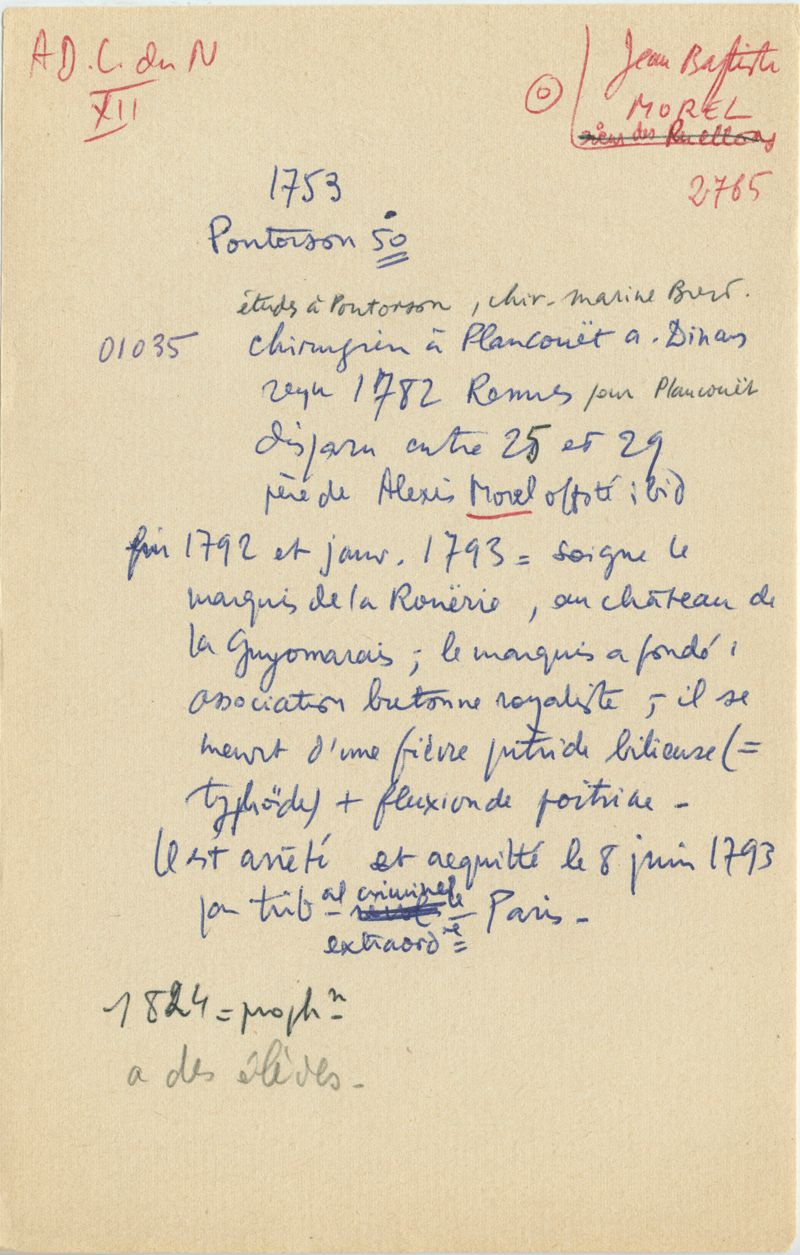 A D. C. du N
XII
Jean Baptiste
MOREL
sieur des Ruettons
2765
1753
Pontorson 50
études à Pontorson, chir. marine Brest.
01035 chirurgien à Plancouët a. Dinan
reçu 1782 Rennes pour Plancouët
disparu entre 25 et 29
père de Alexis Morel off. sté ibid
fin 1792 et janv. 1793 = soigne le
marquis de la Rouërie, au château de
la Guyomarais ; le marquis a fondé l'
association bretonne royaliste ; il se
meurt d'une fièvre putride bilieuse (=
typhoïde) + fluxion de poitrine -
Il est arrêté et acquitté le 8 juin 1793
par trib al criminel le Paris -
extraord re
1824 = proph n
a des élèves -